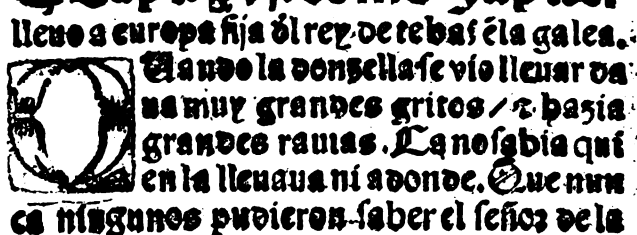 lleuo a europa fija ďl rey de tebas ẽla galea.
Uando la donzella se vio lleuar da
ua muy grandes gritos / ⁊ hazia
grandes rauias. Ca no sabia qui
en la lleuaua ni adonde. Que nun
ca ningunos pudieron saber el señoꝛ de la